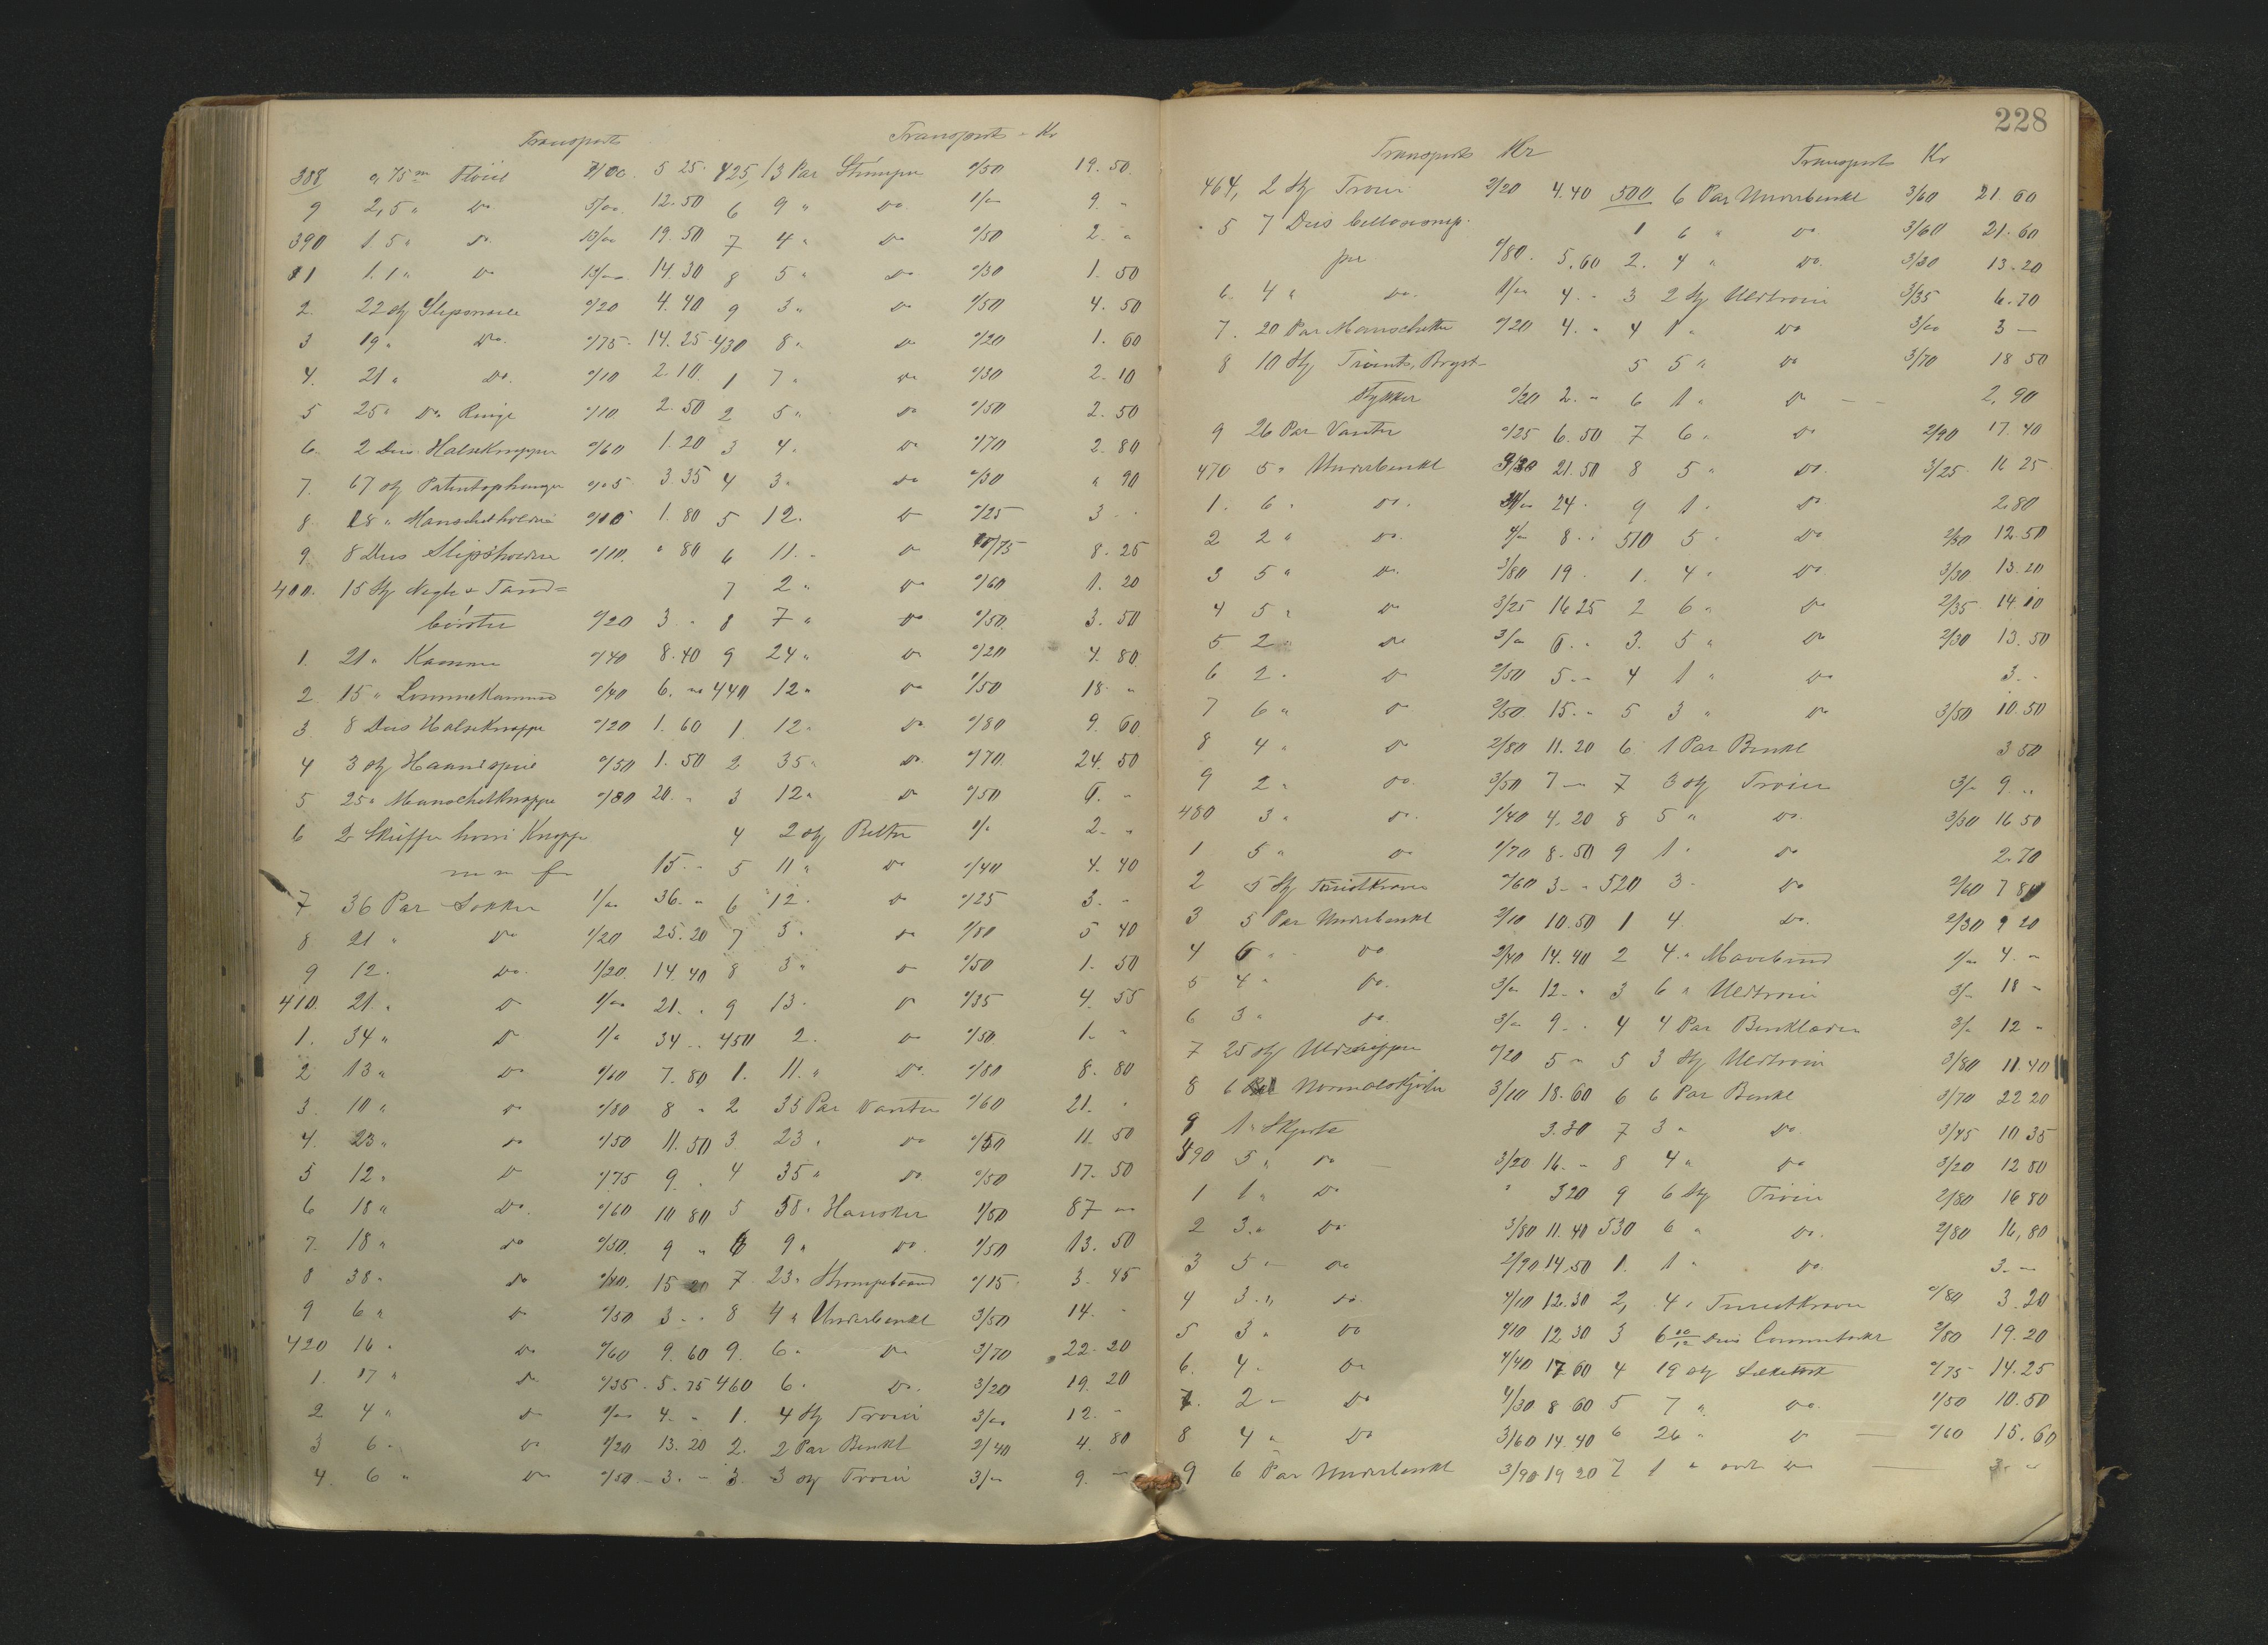 Transports
388 0,75 m Flöiel 7/00 5 25
9 2,5 " do 5/00 12.50
390 1 5 " do 13/00 19.50
91 1.1 " do 13/00 14.30
2 22 stj Slipsnaale 0/20 4.40
3 19 " do 0/75 14.25
4. 21 " do. 0/10 2.10
5 25 " do Ringe 0/10 2.50
6. 2 Dus. Halseknapper 0/60 1.20
7. 67 stj Patentophænger 0/05 3.35
8. 18 " Manschetholdere 0/10 1.80
9. 8 Dus Slipsholdere 0/10. " 80
400. 15 Stj Negle & Tand=
börster 0/20 3 "
1. 21 " Kamme 0/40 8.40
2 15 " Lommekammer 0/40 6. "
3. 8 Dus Halseknapper 0/20 1.60
4 3 stj Haandspeil 0/50 1.50
5 25 " Manschetknapper 0/80 20. "
6 2 Skuffer hvori Knapper
m m f 15. "
7 36 Par Sokker 1/00 36. "
8 21 " do 1/20 25.20
9 12. do. 1/20 14.40
410. 21. " do 1/00 21. "
1. 34 " do 1/00 34 "
2 13 " do 0/60 7.80
3. 10 " do 0/80 8 "
4. 23 " do 0/50 11.50
5 12 " do 0/75 9. "
6 18 " do. 0/60 10 80
7. 18 " do 0/50. 9 "
8 38 " do 0/40. 15 20
9 6 " do 0/50 3. "
420 16 " do 0/60 9.60
1. 17 " do 0/35 5.75
2 4 " do 1/00 4. "
3 6 " do 2/20 13.20
4. 6 " do 0/50 3. "
Transports " Kr
425, 13 Par Strömper 1/50 19.50
6 9 " do. 1/00 9. "
7 4 " do 0/50 2. "
8 5 " do 0/30 1. 50
9 3 " do 1/50 4. 50
430 8 " do 0/20 1. 60
1 7 " do 0/30 2. 10
2 5 " do 0/50 2. 50
3 4. do 0/70 2. 80
4 3 " do 0/30 " 90
5 12. do 0/25 3 "
6 11. " do 0/75 8. 25
7 2 " do 0/60 1. 20
8 7 " do 0/50. 3. 50
9 24 " do 0/20 4. 80
440 12 " do 1/50 18. "
1. 12 " do 0/80 9. 60
2 35 " do. 0/70. 24. 50
3 12 " do 0/50 6. "
4 2 stj Belter 1/00 2. "
5 11 " do 0/40 4. 40
6 12. do 0/25 3. "
7 3 " do 1/80 5 40
8 3 " do 0/50 1. 50
9 13. do 0/35 4. 55
450 2. do 0/50. 1. "
1. 11. " do. 0/80 8. 80
2 35 Par Vanter 0/60 21. "
3. 23 " do 0/50 11. 50
4 35 " do 0/50 17. 50
5 58 " Hansker 1/50 87 "
6 9 " do. 1/50 13. 50
7 23 " Strömpebaand 0/15 3. 45
8 4 " Underbenkl 3/50 14. "
9. 6 " do 3/70 22. 20
460 6 " do. 3/20 19. 20
1. 4 Stj Tröier 3/00 12. "
2. 2 Par Benkl 2/40 4. 80
3. 3 stj Tröier 3/00 9. "
228
Transports Kr
464, 2 Stj Tröier 2/20 4.40
5 7 Dus
0/80. 5.60
6. 4 " do. 1/00 4. "
7. 20 Par Manschetter 0/20 4. "
8 10 Stj Bryst-
stykker 0/20 2. "
9 26 Par Vanter 0/25 6.50
470 5 " Underbenkl 4/30 21.50
1. 6 " do. 4/00 24.
2 2 " do. 4/00 8. "
3 5 " do. 3/80 19.
4 5 " do 3/25 16 25
5 2 " do 3/00 6. "
6 2. do 2/50 5. "
7 6 " do 2/50. 15. "
8 4 " do 2/80 11.20
9 2 " do. 3/50 7 "
480 3 " do. 1/40 4.20
1 5 " do 1/70 8.50
2 5 Stj 0/60 3. "
3 5 Par Underbenkl 2/10 10.50
4 6 " do 2/40 14.40
5 4 " do. 3/00 12. "
6 3 " do. 3/00 9. "
7 25 stj 0/20 5 "
8 6 Normalskjorter 3/10 18.60
9 1 " Skjorte 3.30
490 5 " do 3/20 16. "
1 1 " do " 3 20
2 3. " do 3/80 11.40
3 5 " do 2/90 14,50
4 3 " do. 4/10 12.30
5 3 " do 4/10 12 30
6. 4 " do 4/40 17 60
7. 2 " do 4/30 8 60
8 4 " do 3/60 14.40
9 6 Par Underbenkl 3/90 19 20
Transports Kr
500 6 Par Underbenkl 3/60 21.60
1 6 " do 3/60 21.60
2. 4 " do. 3/30 13.20
3 2 Stj Uldtröier 3/35 6.70
4 1 " do 3/00 3 —
5 5 " do 3/70 18 50
6 1 " do — — 2,90
7 6 " do 2/90 17.40
8 5 " do. 3/25 16 25
9 1 " do 2.80
510 5 " do 2/50 12.50
1. 4 " do 3/30 13.20
2 6 " do 2/35 14.10
3. 5 " do 2/30 13.50
4 1 " do 3. "
5 3 " do 3/50 10.50
6. 1 Par Benkl 3 50
7 3 stj Tröier 3/00 9 "
8 5 " do. 3/30 16 50
9 1 " do 2.70
520 3. do 2/60 7 80
1 4. do. 2/30 9 20
2 4 " Mavebind 1/00 4. "
3 6 " Uldtröier 3/00 18 "
4 4 Par Benklæder 3/00 12 "
5 3 Stj Uldtröier 3/80 11.40
6 6 Par Benkl 3/70 22 20
7 3 " do. 3/45 10 35
8 4 " do 3/20 12 80
9 6 Stj Tröier 2/80 16 80
530 6 " do. 2/80 16,80
1. 1 " do. 3. —
2, 4 " 0/80 3.20
3 6 10/12 Dus 2/80 19.20
4 19 stj 0/75 14.25
5 7 " do. 1/50 10.50
6 26 " do — 0/60 15.60
7 1 " do — 3. "